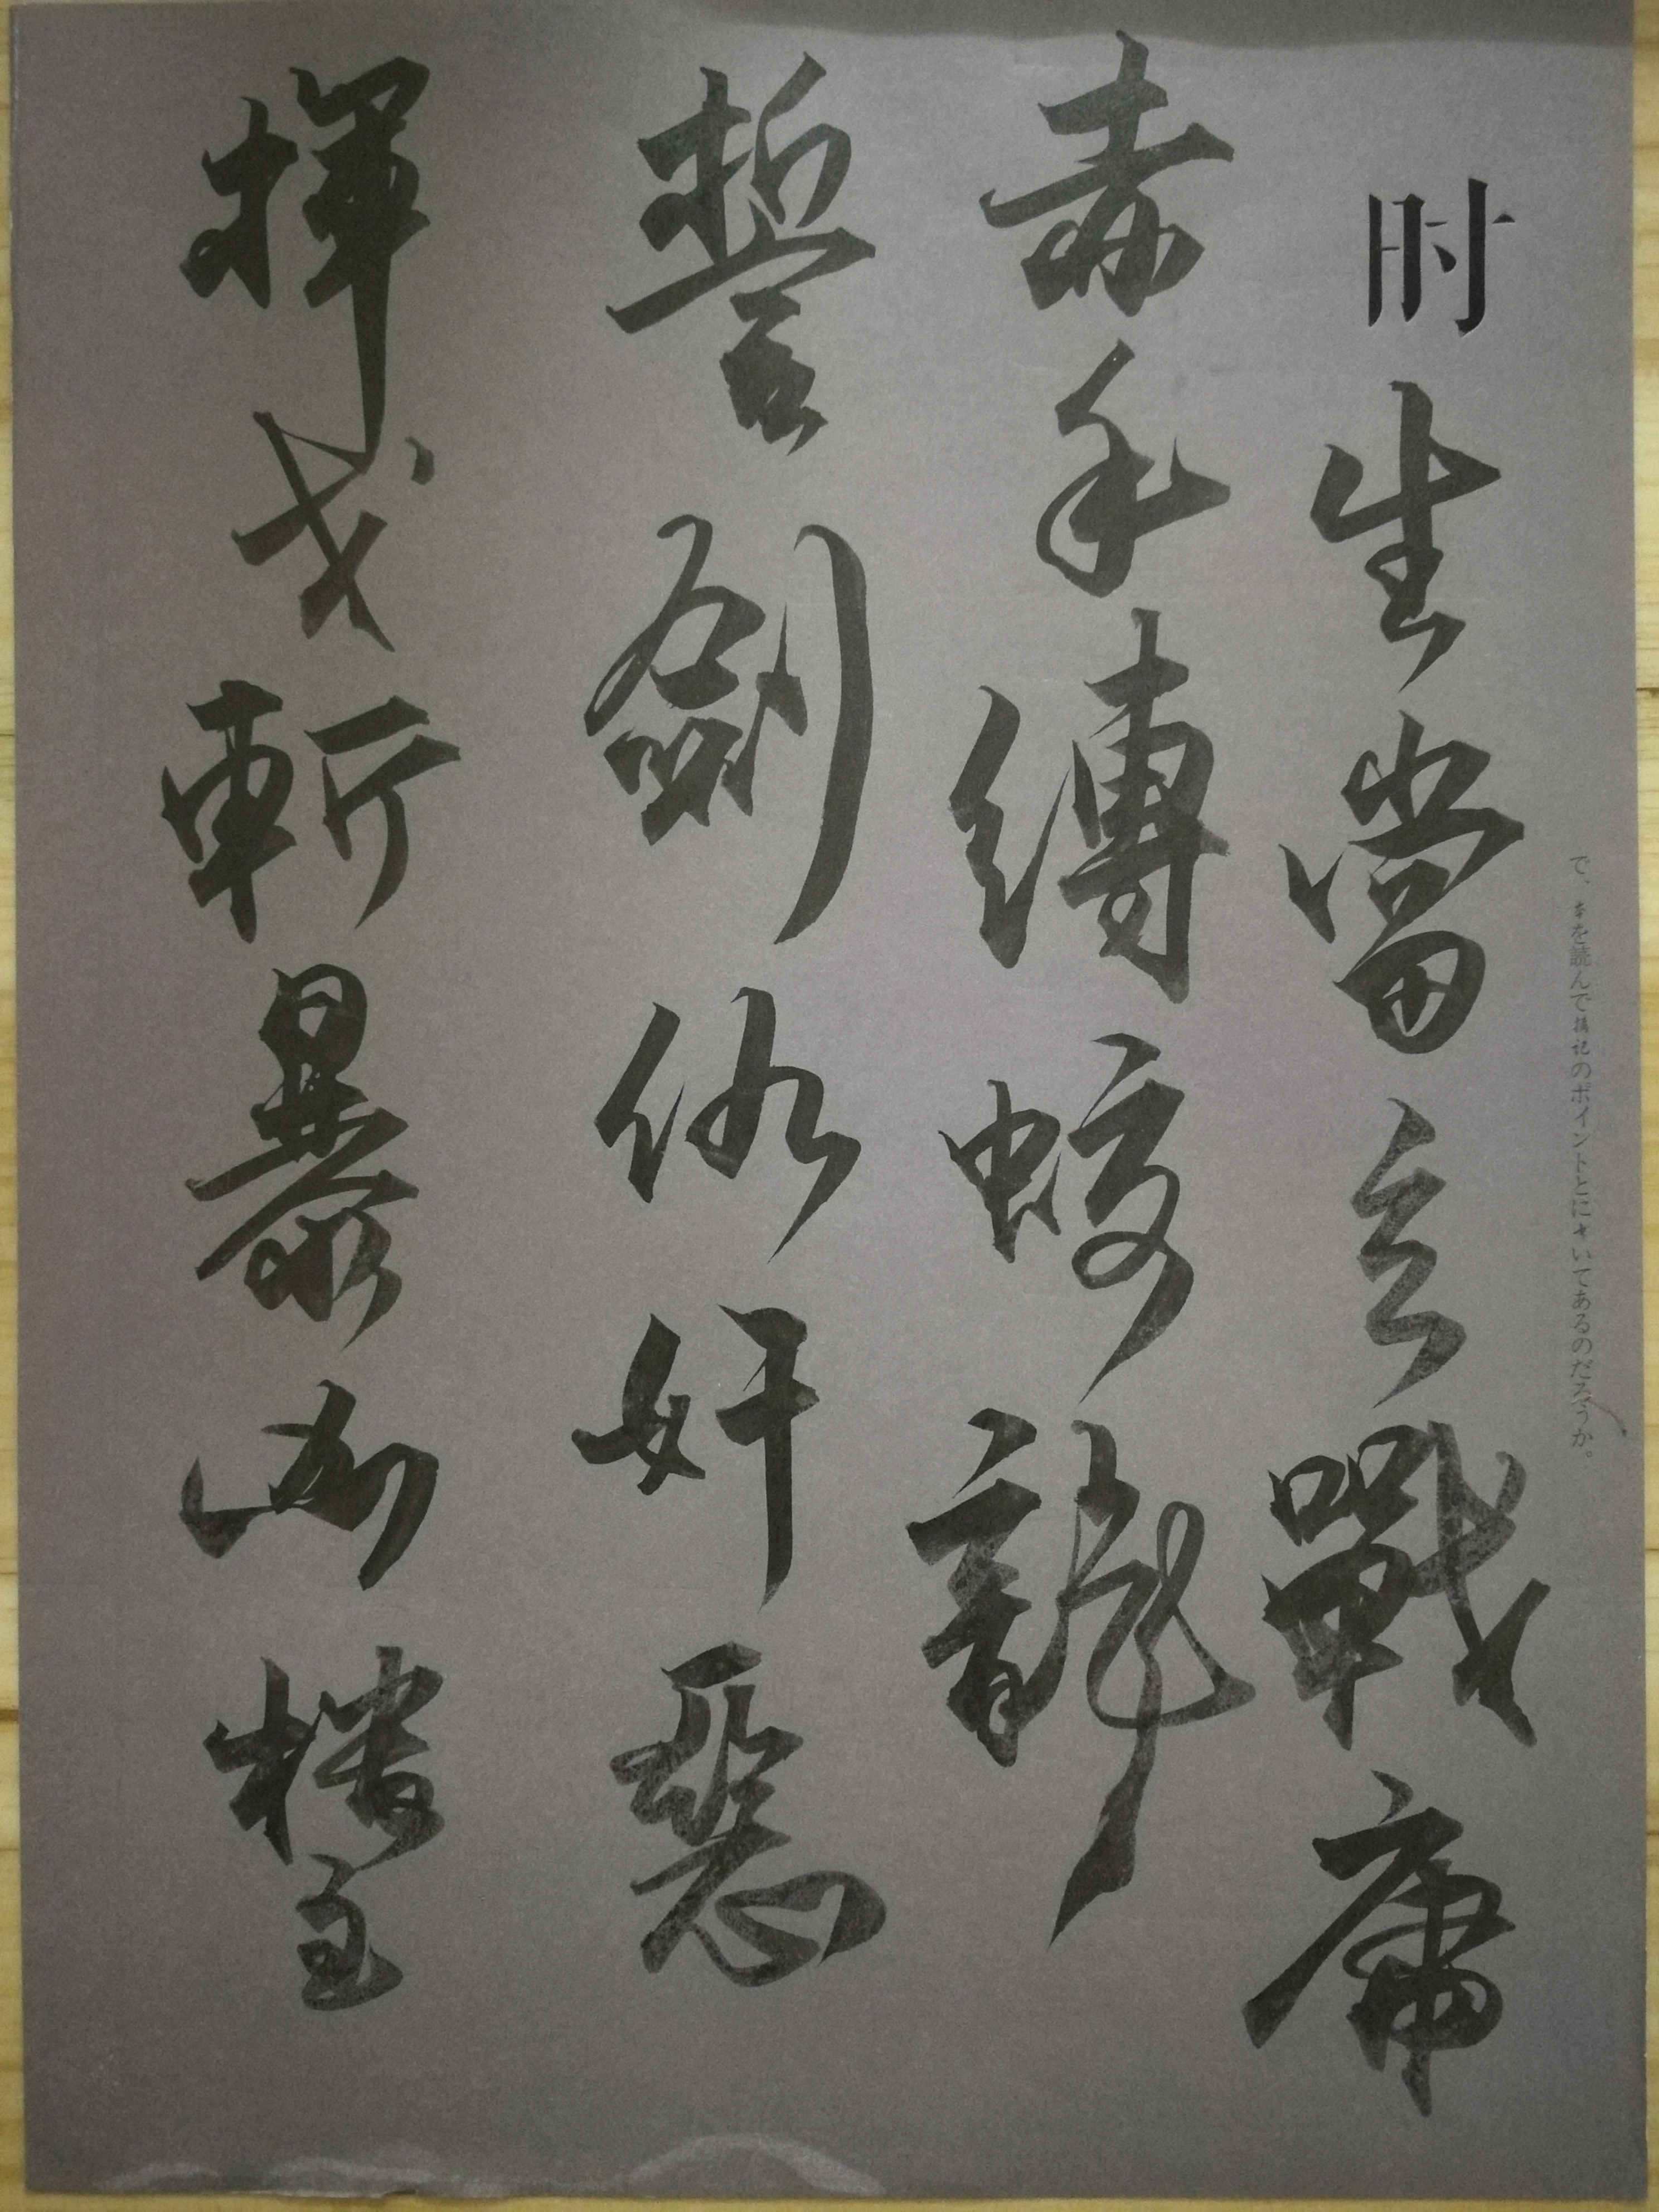 で、本を読んで記のポイントとにいてあるのだろうか。
时
生當立戰庸
赤手縛蛟龍
誓劍奸惡
揮戈斬暴凶 樓主